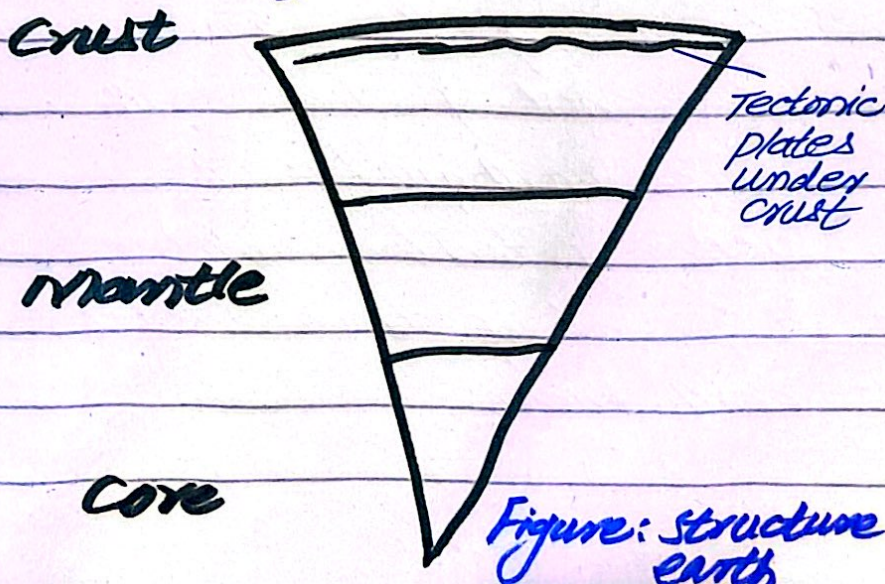 Crust
Tectonic
plates
under
crust
Mantle
Core
Figure: structure
earth